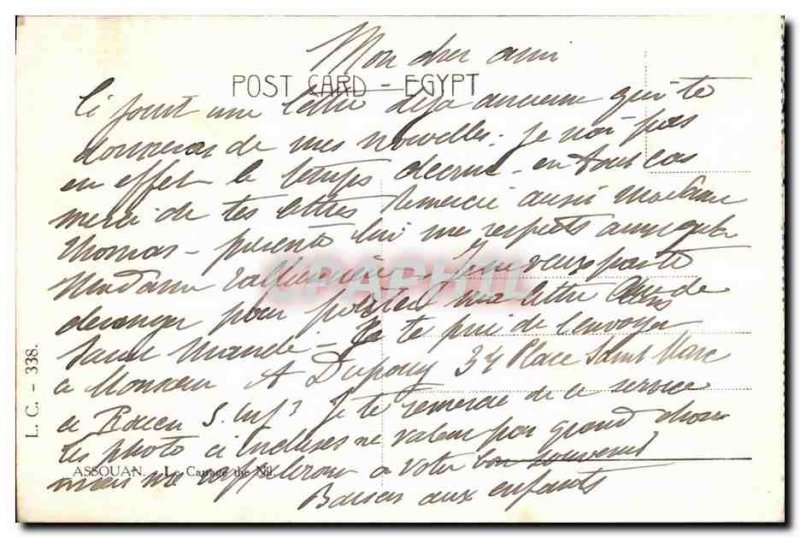 Mon cher ami
POST CARD - EGYPT
Ci joint une lettre déjà ancienne qui te
donneras de mes nouvelles. Je n'ai pas
en effet le temps décrire en tous cas
merci de tes lettres Remercie aussi Madame
Thomas - présente lui mes respects ainsi qu'à
Madame
CPAPHIL
déranger pour ma lettre
Saint Mandé - Je te prie de l'envoyer
a Monsieur A Dupouy 34 Place Saint Marc
a Rouen S. Inf Je te remercie de ce service
Les photo ci incluses ne valent pas grand chose
ASSOUAN. - Le Nil
mais me rappelleront a votre bon souvenir
Baisers aux enfants
L. C. - 338.